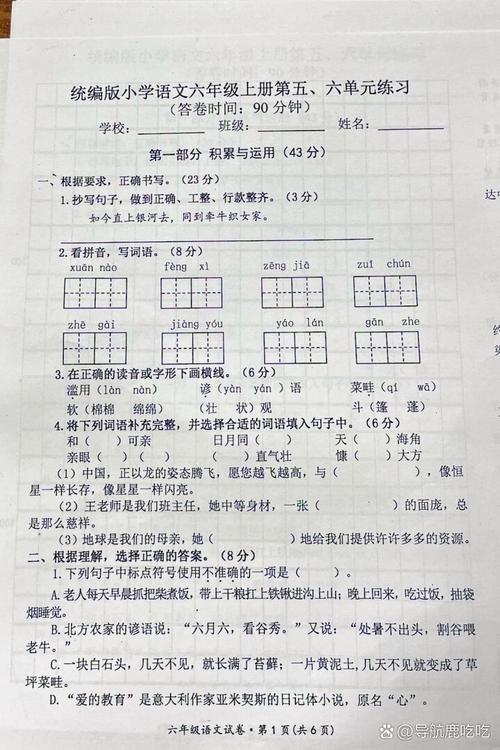 统编版小学语文六年级上册第五、六单元练习
（答卷时间：90 分钟）
学校：________ 班级：________ 姓名：________
第一部分 积累与运用（43 分）
一、根据要求，正确书写。（23 分）
1.抄写句子，做到正确、工整、行款整齐。（3 分）
如今直上银河去，同到牵牛织女家。
2.看拼音，写词语。（8 分）
xuān nào fèng xì zēng jiā zuǐ chún
zhē gài jiàng yóu yáo lán gān zhe
3.在正确的读音或字形下画横线。（6 分）
滥用（làn nàn） 谚（yàn yán）语 菜畦（qí wā）
软（棉棉 绵绵） （壮 状）观 斗（篷 蓬）
4.将下列词语补充完整，并选择合适的词语填入句子中。（6 分）
和（ ）可亲 日月同（ ） 天（ ）海角
亲眼（ ）（ ） （ ）直气壮 慷（ ）大方
（1）中国，正以龙的姿态腾飞，愿您越飞越高，与（ ），像恒
星一样长存，像星星一样闪亮。
（2）王老师是我们班主任，她中等身材，一张（ ）的面庞，总
是那么慈祥。
（3）地球是我们的母亲，她（ ）地给我们提供许许多多的资源。
二、根据理解，选择正确的答案。（8 分）
1.下列句子中标点符号使用不准确的一项是（ ）。
A.老人每天早晨抓把柴煮饭，带上干粮扛上铁锹进沟上山；晚上回来，吃过饭，抽袋
烟睡觉。
B.北方农家的谚语说：“六月六，看谷秀。”又说：“处暑不出头，割谷喂
老牛。”
C.一块白石头，几天不见，就长满了苔藓；一片黄泥土，几天不见就变成了草
坪菜畦。
D.“爱的教育”是意大利作家亚米契斯的日记体小说，原名“心”。
六年级语文试卷·第 1 页（共 6 页）
@导航鹿吃吃